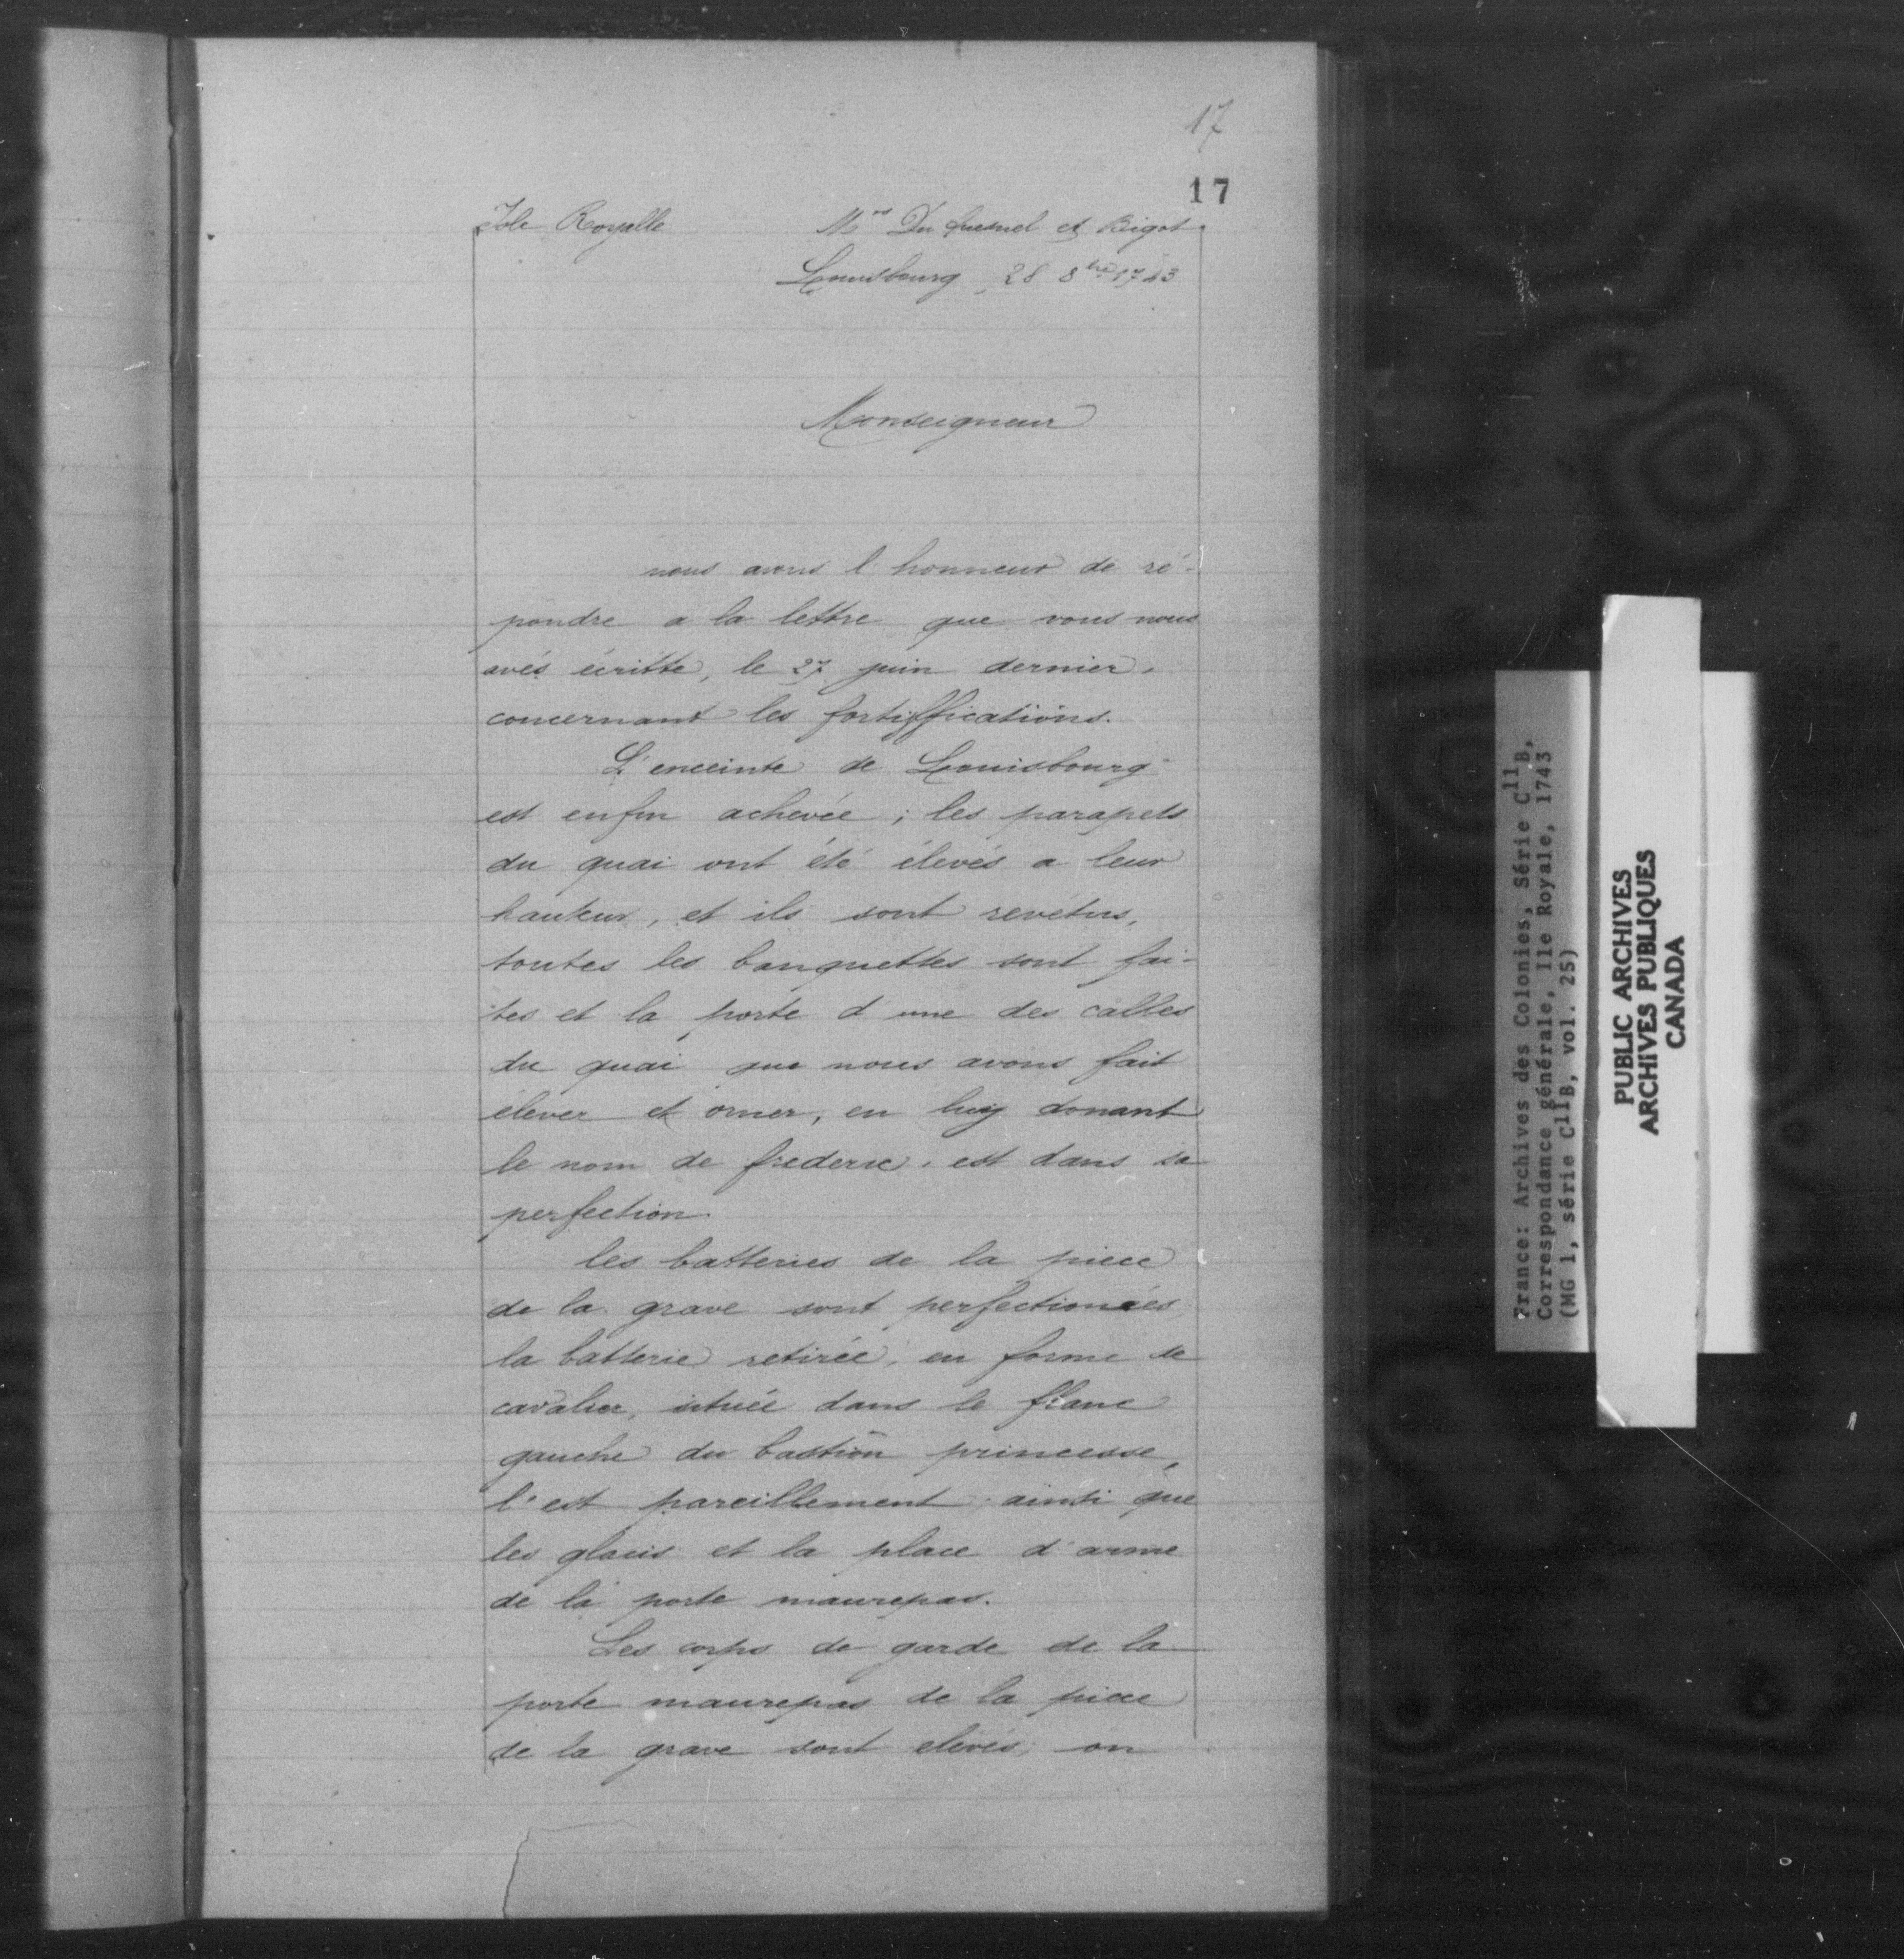 17
17
Isle Royalle
Mrs Du quesnel et Bigot
Louisbourg, 28 8bre 1743
Monseigneur
nous avons l'honneur de ré-
pondre a la lettre que vous nous
avés écritte, le 27 juin dernier,
concernant les fortiffications.
L'enceinte de Louisbourg
est enfin achevée ; les parapets
du quai ont été élevés a leur
hauteur, et ils sont revétus,
toutes les banquettes sont fai-
tes et la porte d'une des calles
du quai que nous avons fait
élever et orner, en luy donant
le nom de frederic, est dans sa
perfection.
les batteries de la piece
de la grave sont perfectionées
la batterie retirée, en forme de
cavalier, située dans le flanc
gauche du bastion princesse,
l'est pareillement ainsi que
les glacis et la place d'arme
de la porte maurepas.
Les corps de garde de la
porte maurepas de la piece
de la grave sont elevés; on
France: Archives des Colonies, Série C11B,
Correspondance générale, Ile Royale, 1743
(MG 1, série C11B, vol. 25)
PUBLIC ARCHIVES
ARCHIVES PUBLIQUES
CANADA